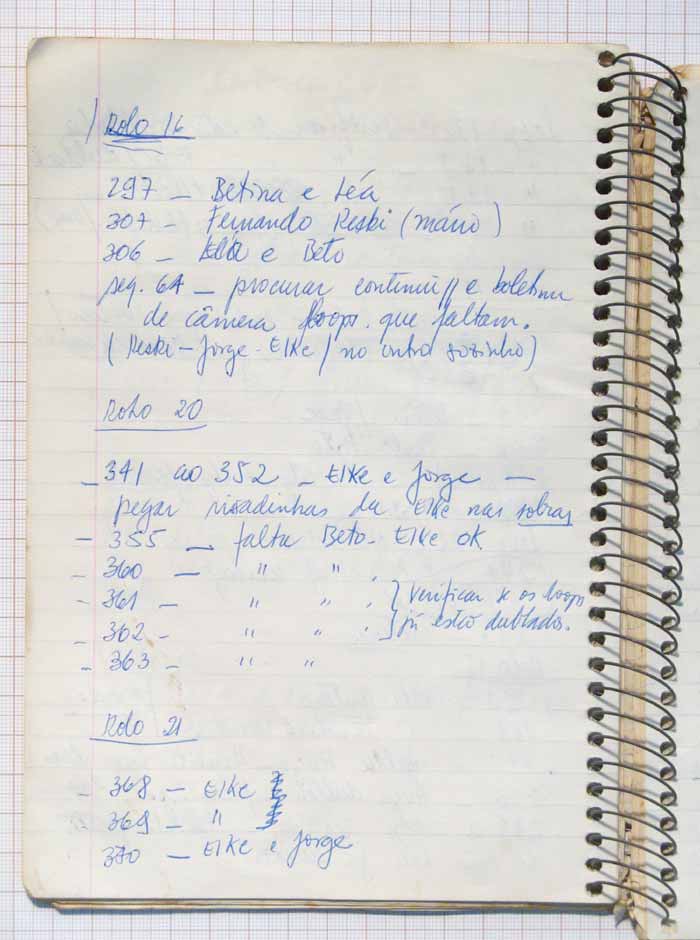 / Rolo 16
297 - Betina e Léa
307 - Fernando Reski (mário)
306 - Léa e Beto
seq. 64 - procurar continui// e boletim
de câmera loops que faltam.
(Reski - Jorge - Elke / no outro sozinho)
Rolo 20
- 341 ao 352 - Elke e Jorge -
pegar risadinhas da Elke nas sobras
- 355 - falta Beto - Elke ok
- 360 - " " ,
- 361 - " " , } Verificar se os loops
- 362 - " " , já estão dublados.
- 363 - " "
Rolo 21
- 368 - Elke
- 369 - "
370 - Elke e Jorge